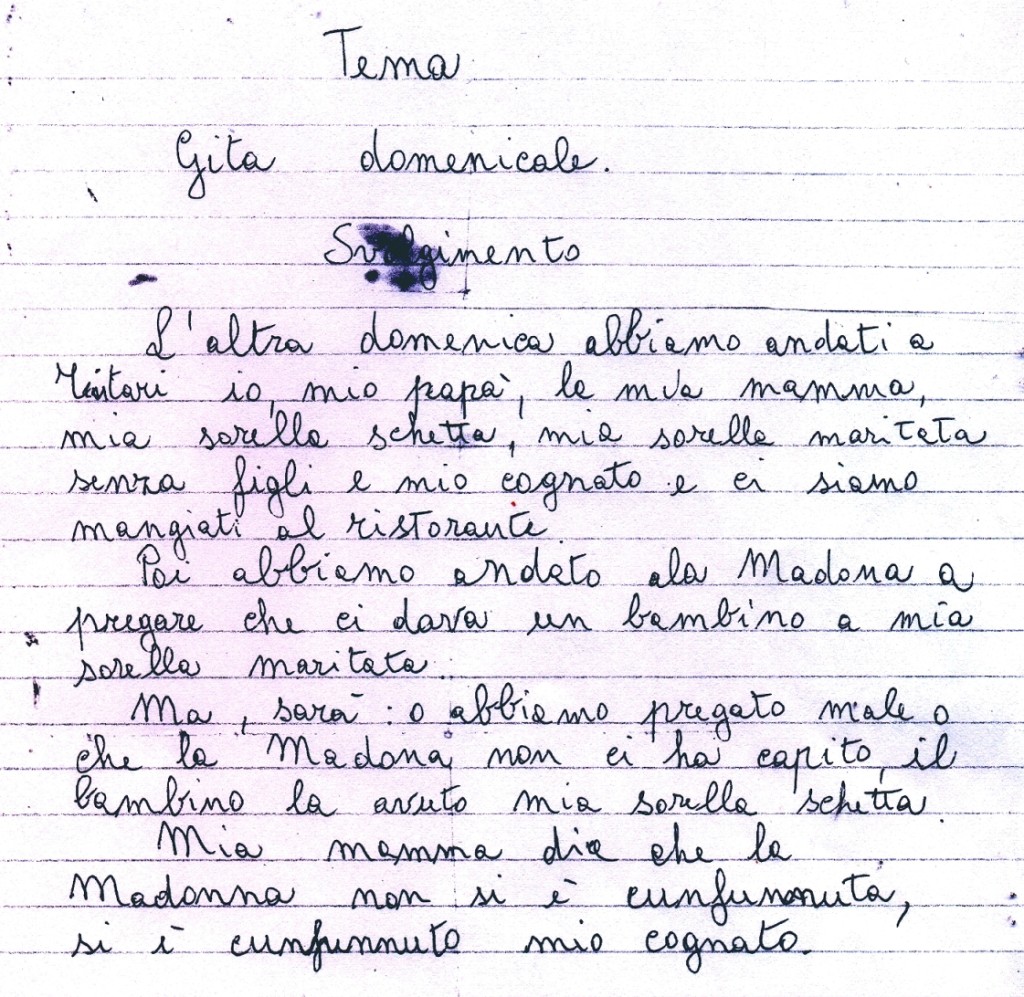 Tema
Gita domenicale.
Svolgimento
L'altra domenica abbiamo andati a
Tintari io, mio papà, la mia mamma,
mia sorella schetta, mia sorella maritata
senza figli e mio cognato e ci siamo
mangiati al ristorante
Poi abbiamo andato ala Madona a
pregare che ci dava un bambino a mia
sorella maritata.
Ma, sarà: o abbiamo pregato male o
che la Madona non ci ha capito, il
bambino la avuto mia sorella schetta
Mia mamma dice che la
Madonna non si è cunfunnuta,
si è cunfunnuto mio cognato.